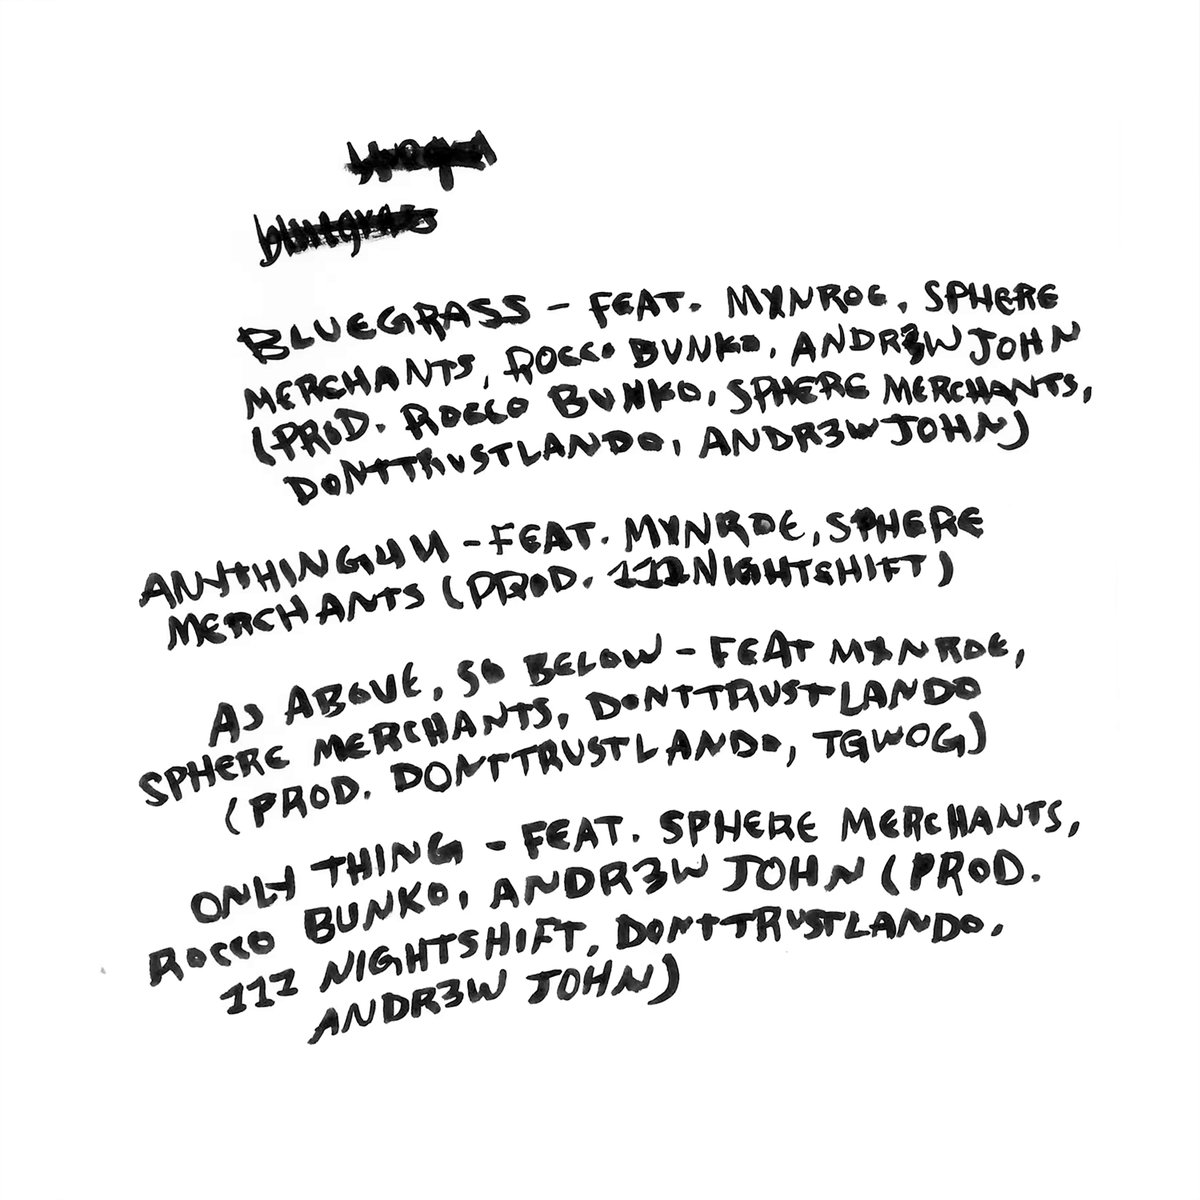 bluegrass
BLUEGRASS - FEAT. MYNROE, SPHERE
MERCHANTS, ROCCO BUNKO, ANDR3W JOHN
(PROD. ROCCO BUNKO, SPHERE MERCHANTS,
DONTTRUSTLANDO, ANDR3W JOHN)
ANYTHING4U - FEAT. MYNROE, SPHERE
MERCHANTS (PROD. 111NIGHTSHIFT)
AS ABOVE, SO BELOW - FEAT MYNROE,
SPHERE MERCHANTS, DONTTRUSTLANDO
(PROD. DONTTRUSTLANDO, TGWOG)
ONLY THING - FEAT. SPHERE MERCHANTS,
ROCCO BUNKO, ANDR3W JOHN (PROD.
111 NIGHTSHIFT, DONTTRUSTLANDO,
ANDR3W JOHN)